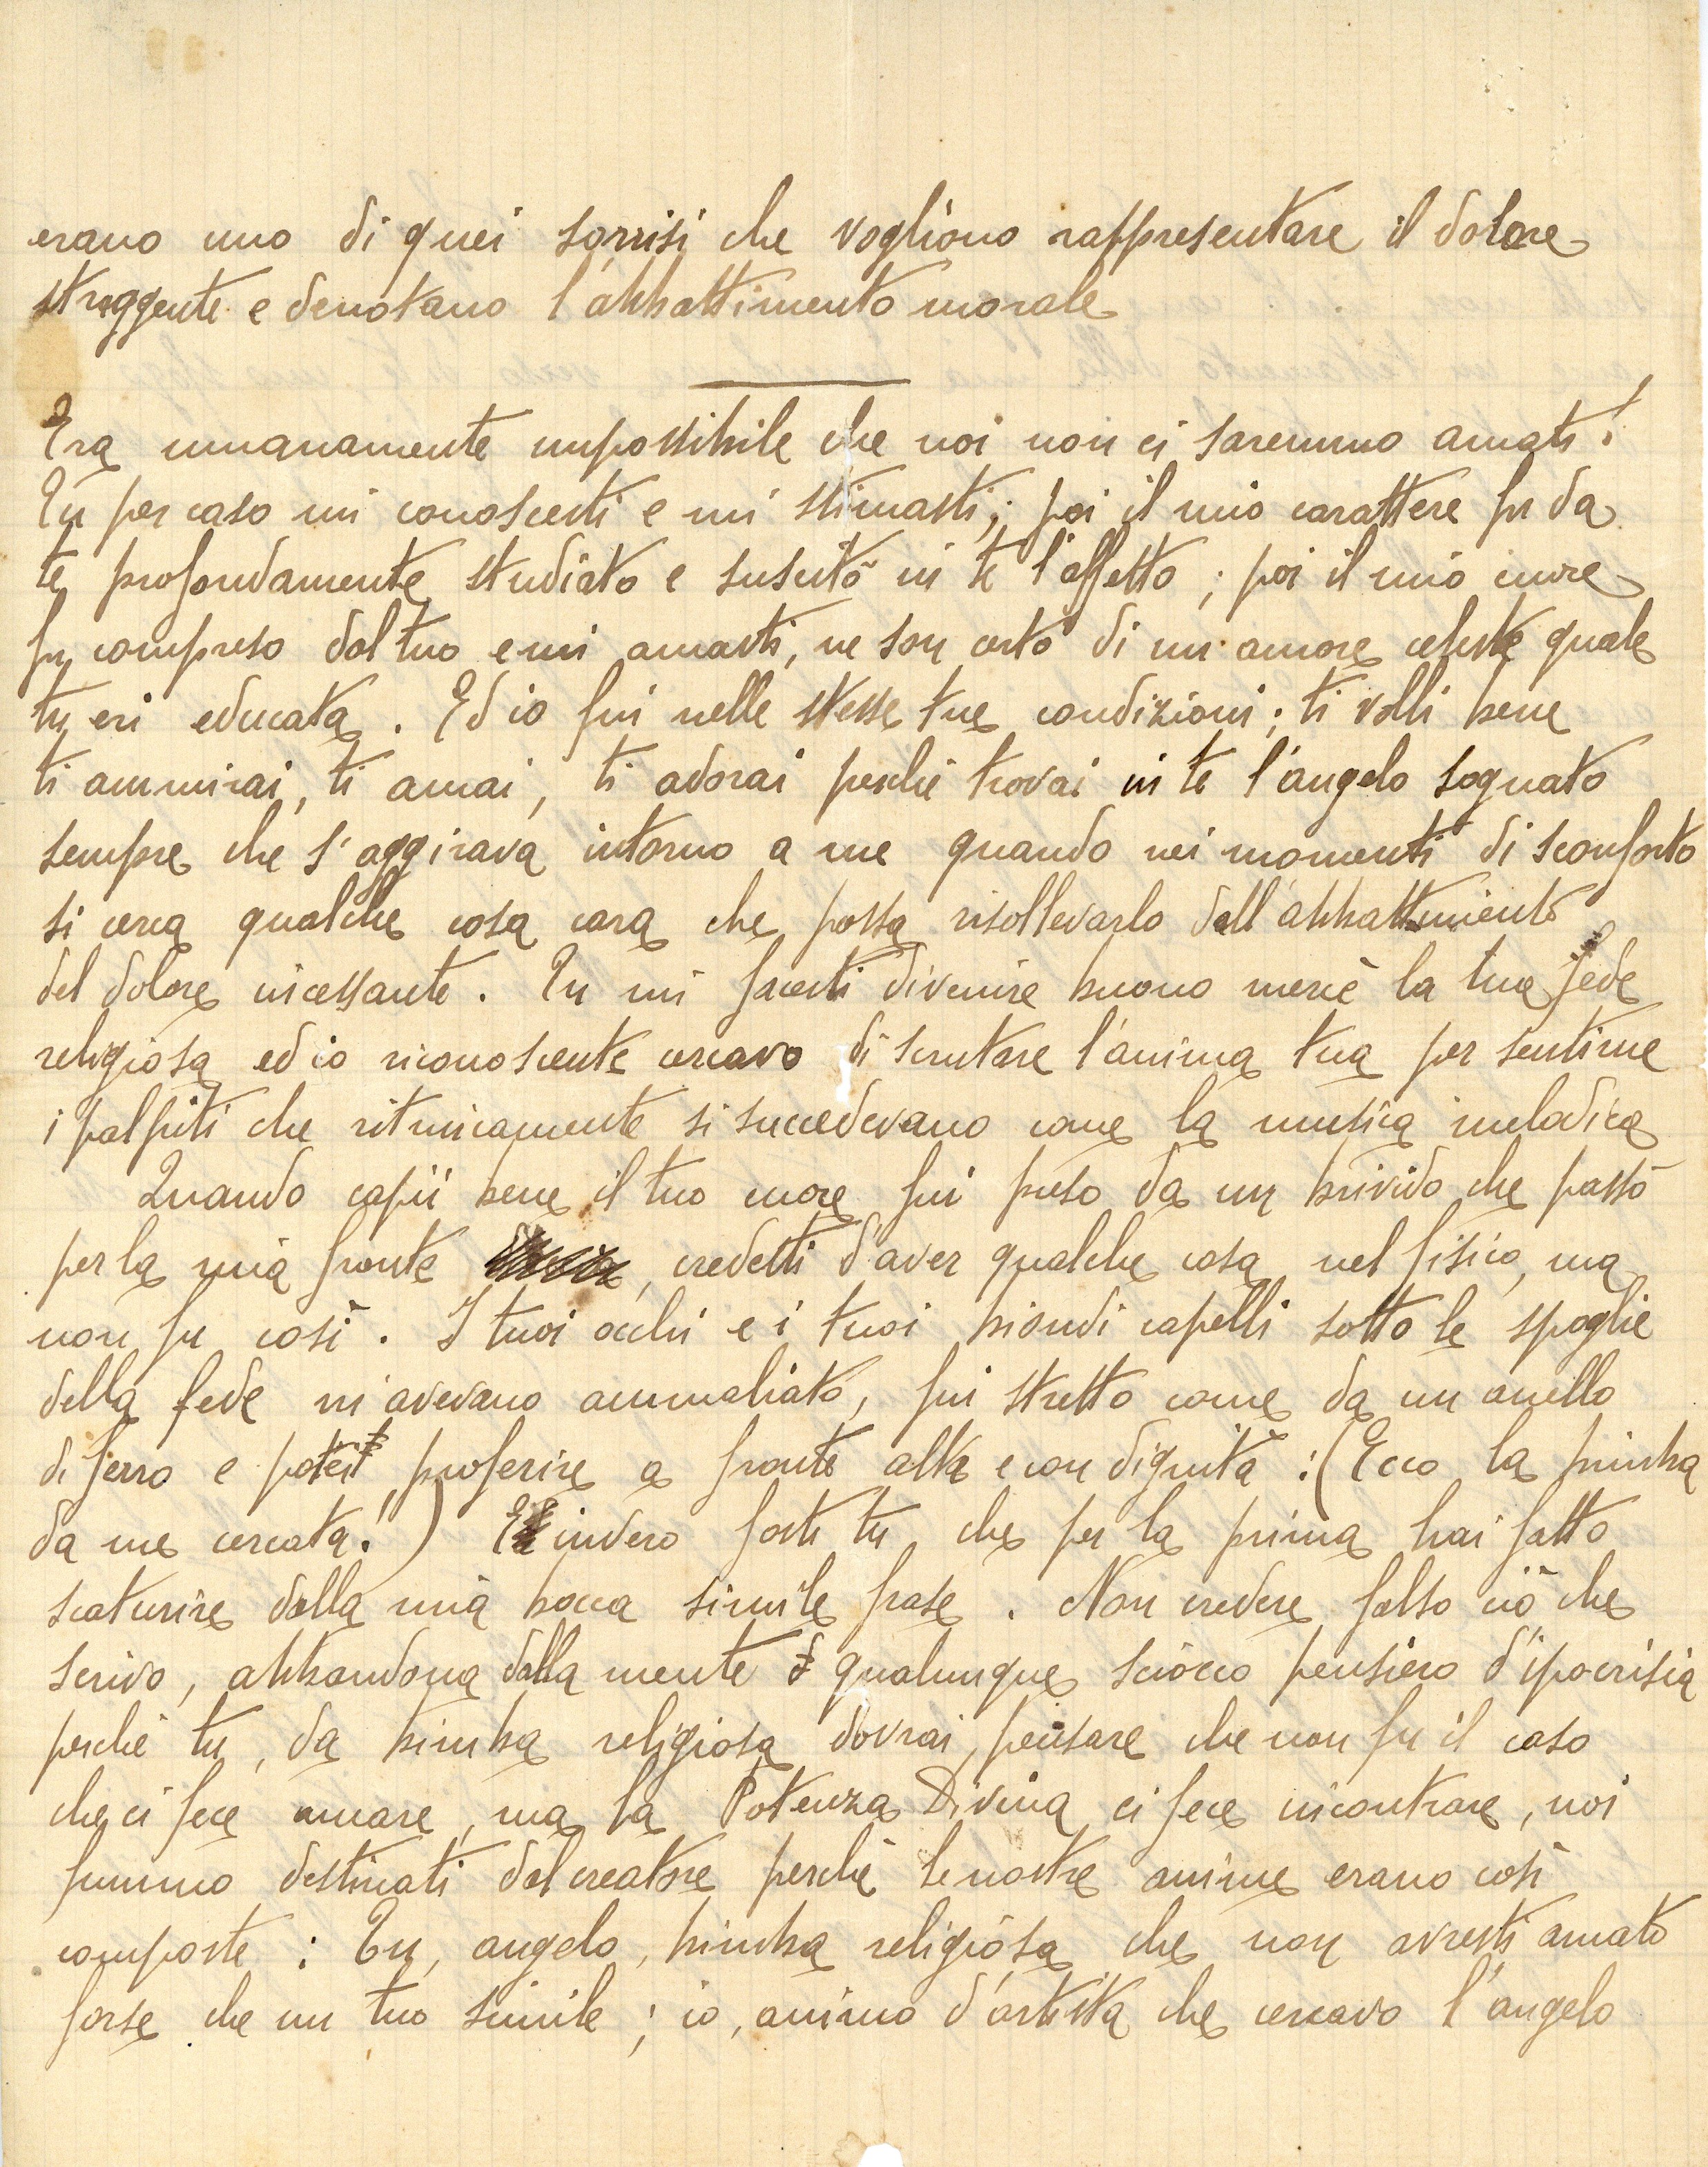 erano uno di quei sorrisi che vogliono rappresentare il dolore
struggente e denotano l'abbattimento morale
Era umanamente impossibile che noi non ci saremmo amati!
Tu per caso mi conoscesti e mi stimasti; poi il mio carattere fu da
te profondamente studiato e suscitò in te l'affetto; poi il mio cuore
fu compreso dal tuo e mi amasti, ne son certo di un amore celeste quale
tu eri educata. Ed io fui nelle stesse tue condizioni; ti volli bene
ti ammirai, ti amai, ti adorai perchè trovai in te l'angelo sognato
sempre che s'aggirava intorno a me quando nei momenti di sconforto
si cerca qualche cosa cara che possa risollevarlo dall'abbattimento
del dolore incessante. Tu mi facesti divenire buono mercè la tua fede
religiosa ed io riconoscente cercavo di scrutare l'anima tua per sentirne
i palpiti che ritmicamente si succedevano come la musica melodica
Quando capii bene il tuo cuore fui preso da un brivido che passò
per la mia fronte, credetti d'aver qualche cosa nel fisico, ma
non fu così. I tuoi occhi e i tuoi biondi capelli sotto le spoglie
della fede m'avevano ammaliato, fui stretto come da un anello
di ferro e potei proferire a fronte alta e con dignità: (Ecco la bimba
da me cercata!) E invero fosti tu che per la prima hai fatto
scaturire dalla mia bocca simile frase. Non credere falso ciò che
scrivo, abbandona dalla mente qualunque sciocco pensiero d'ipocrisia
perchè tu, da bimba religiosa dovrai pensare che non fu il caso
che ci fece amare, ma la Potenza Divina ci fece incontrare, noi
fummo destinati dal creatore perchè le nostre anime erano così
composte: Tu, angelo, bimba religiosa che non avresti amato
forse che un tuo simile; io, animo d'artista che cercavo l'angelo